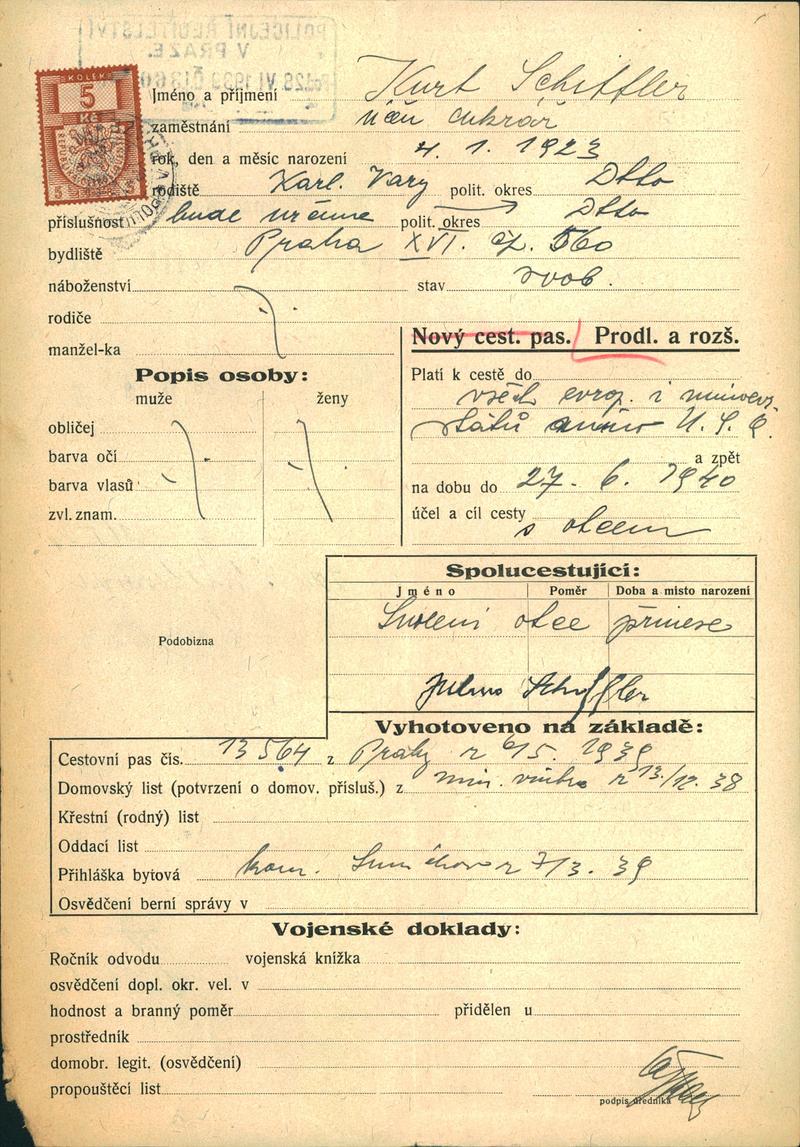 POLICEJNÍ ŘEDITELSTVÍ
V PRAZE.
28. VI. 1939
KOLEK
5
Kč
5 5
Jméno a příjmení Kurt Schiffler
zaměstnání učeň cukrář
rok, den a měsíc narození 4. 1. 1923
rodiště Karl. Vary polit. okres Dtto
příslušnost bude určena polit. okres Dtto
bydliště Praha XVI. čp. 560
náboženství stav svob.
rodiče
manžel-ka
Nový cest. pas. Prodl. a rozš.
Popis osoby:
muže ženy
obličej
barva očí
barva vlasů
zvl. znam.
Platí k cestě do
všech evrop. i mimoevr.
států mimo U. S. a
a zpět
na dobu do 27. 6. 1940
účel a cíl cesty
s otcem
Spolucestující:
Jméno Poměr Doba a místo narození
Svolení otce přinese
Julius Schiffler
Podobizna
Vyhotoveno na základě:
Cestovní pas čís. 13564 z Prahy z 6/5. 1939
Domovský list (potvrzení o domov. přísluš.) z min. vnitra z 13./12. 38
Křestní (rodný) list
Oddací list
Přihláška bytová kom. Smíchov z 7/3. 39
Osvědčení berní správy v
Vojenské doklady:
Ročník odvodu vojenská knížka
osvědčení dopl. okr. vel. v
hodnost a branný poměr přidělen u
prostředník
domobr. legit. (osvědčení)
propouštěcí list
podpis úředníka